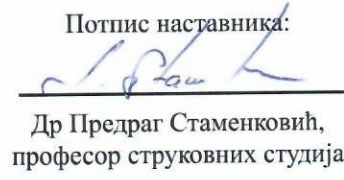 Потпис наставника:
Др Предраг Стаменковић,
професор струковних студија